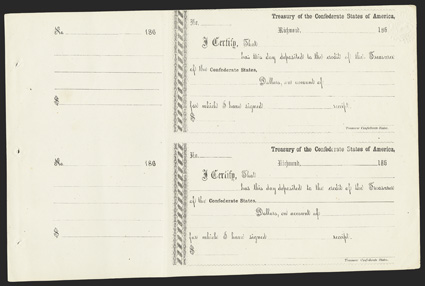 No. 186
$
Treasury of the Confederate States of America,
No. Richmond, 186
I Certify, That
has this day deposited to the credit of the Treasurer
of the Confederate States,
Dollars, on account of
for which I have signed receipt.
$
Treasurer Confederate States.
No. 186
$
Treasury of the Confederate States of America,
No. Richmond, 186
I Certify, That
has this day deposited to the credit of the Treasurer
of the Confederate States,
Dollars, on account of
for which I have signed receipt.
$
Treasurer Confederate States.